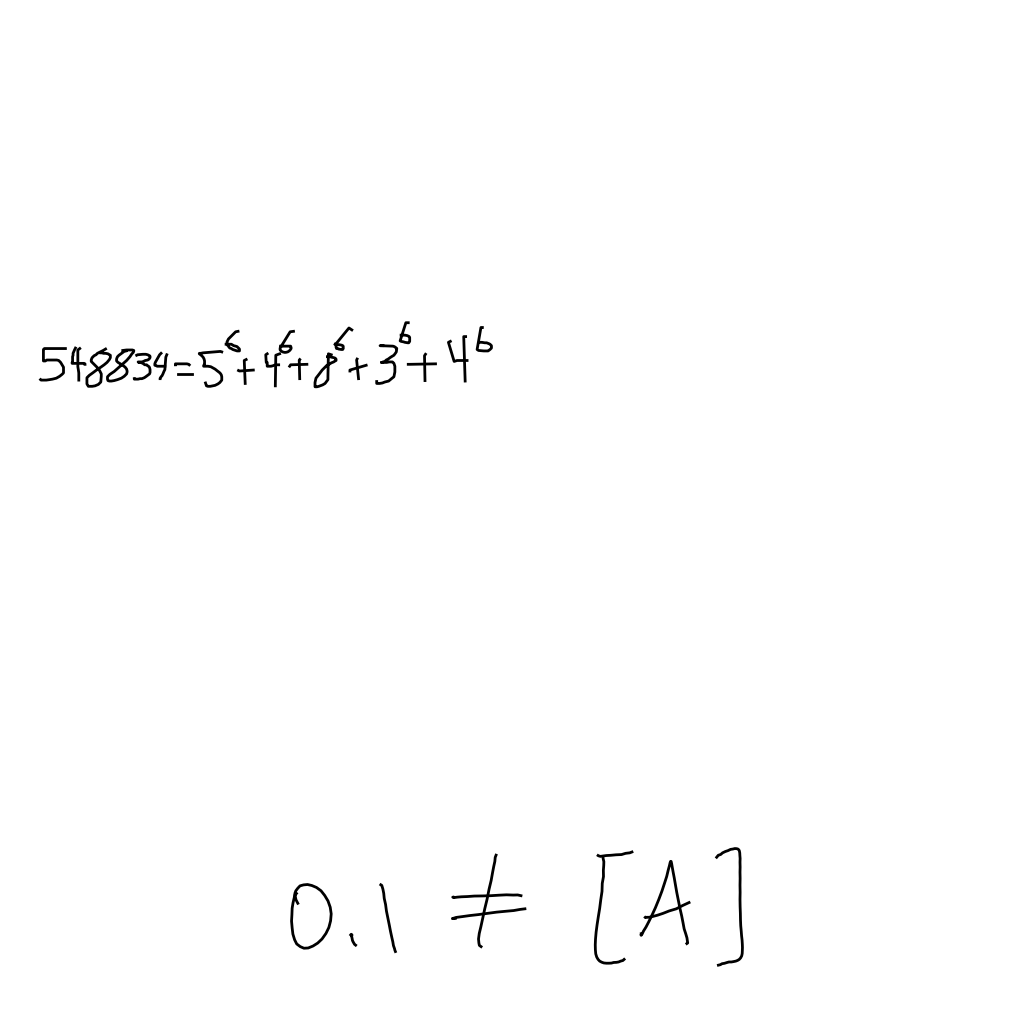 548834=5^6+4^6+8^6+3^6+4^6
0.1 ≠ [A]